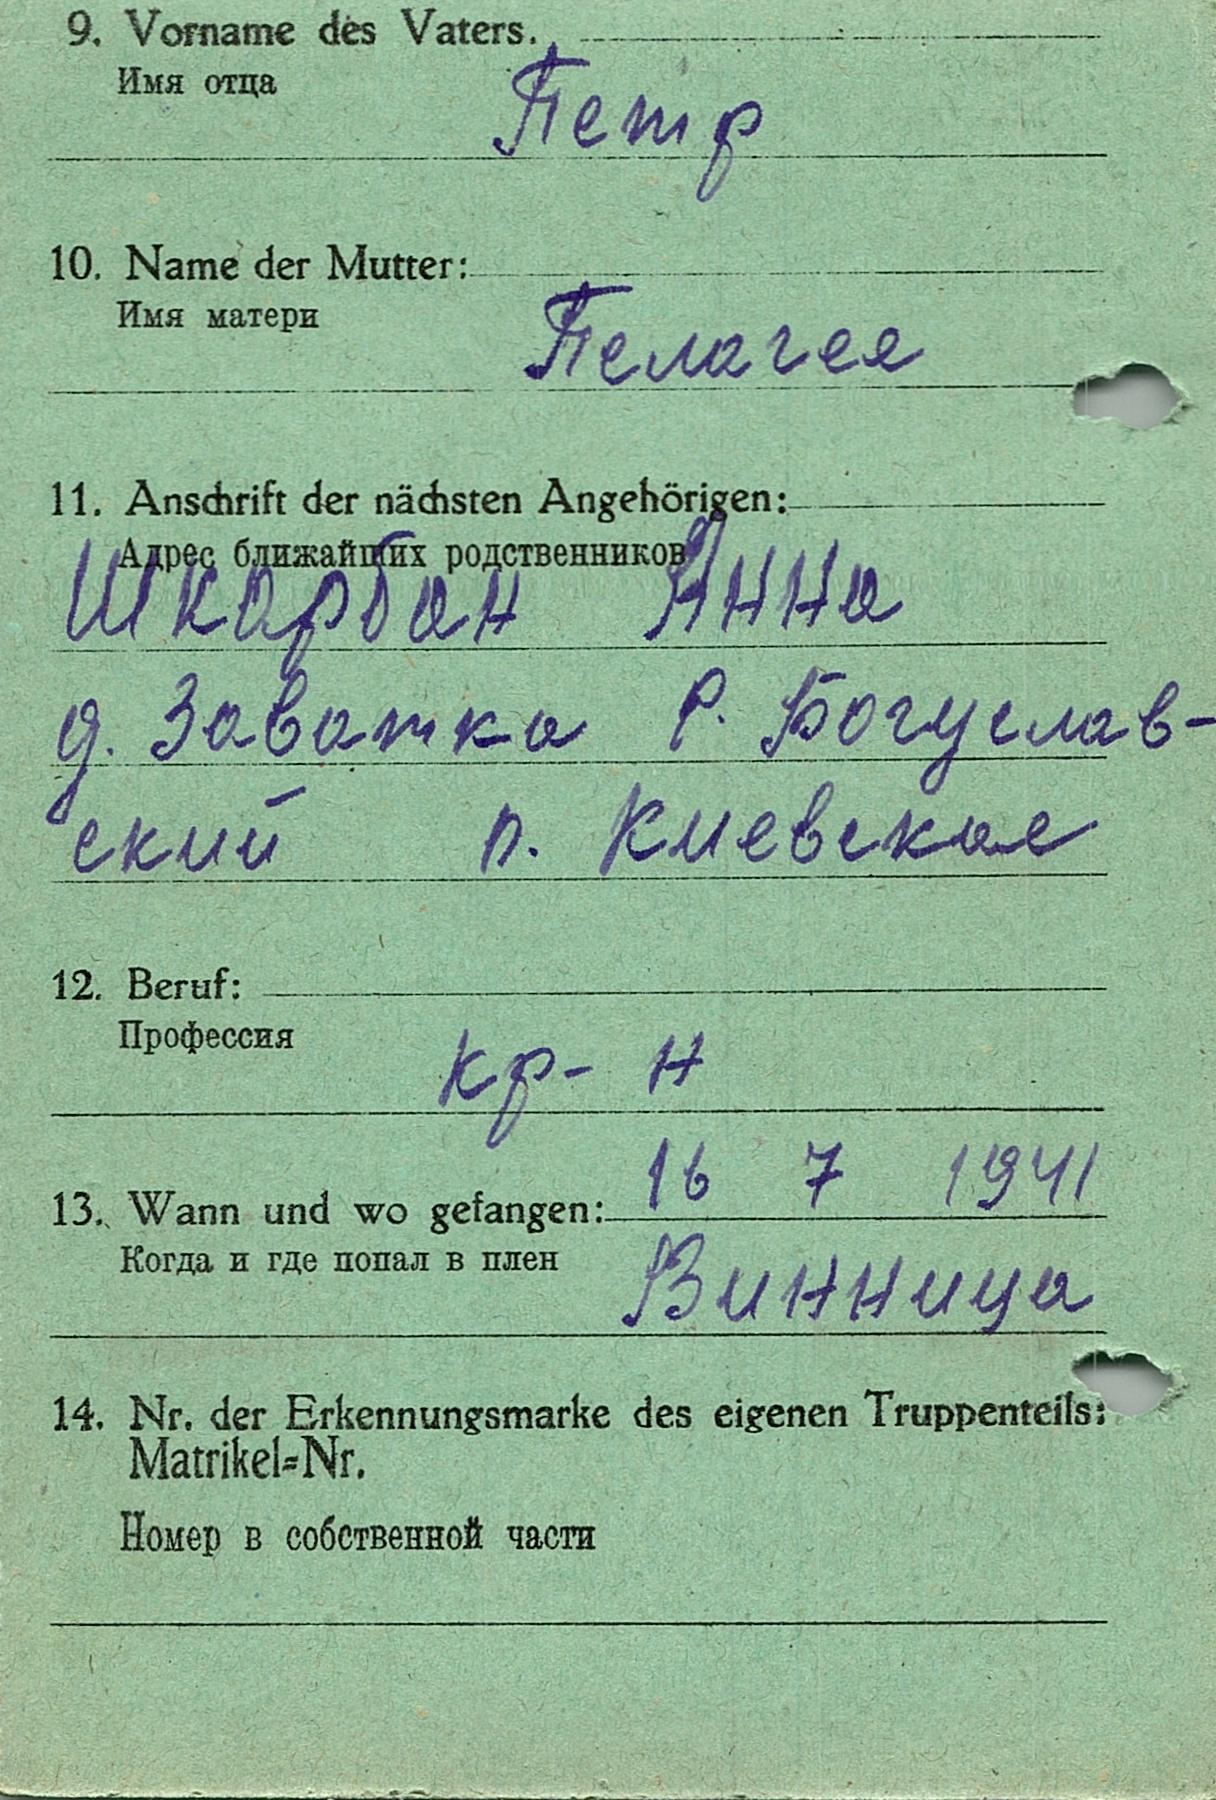 9. Vorname des Vaters.
Имя отца
Петр
10. Name der Mutter:
Имя матери
Пелагея
11. Anschrift der nächsten Angehörigen:
Адрес ближайших родственников
Шкарбан Анна
д. Заватка Р. Богуслав-
ский п. Киевская
12. Beruf:
Профессия
кр-н
16 7 1941
13. Wann und wo gefangen:
Когда и где попал в плен
Винница
14. Nr. der Erkennungsmarke des eigenen Truppenteils:
Matrikel=Nr.
Номер в собственной части